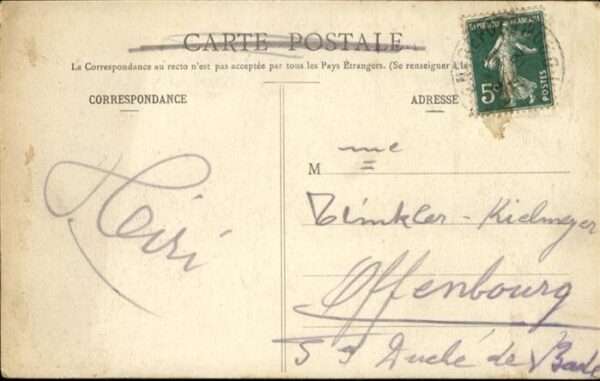 CARTE POSTALE
La Correspondance au recto n'est pas acceptée par tous les Pays Étrangers. (Se renseigner à la
CORRESPONDANCE
ADRESSE
5c
POSTES
M me
Winkler - Kielmeyer
Offenbourg
Duché de Bade
Heiri